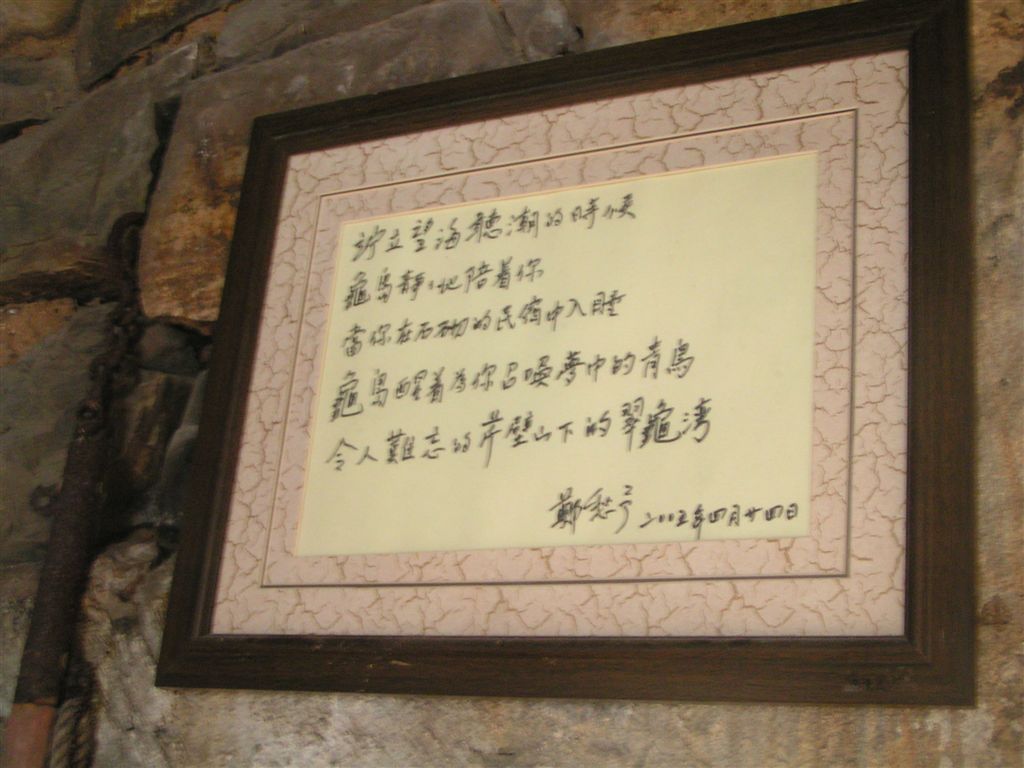 竚立望海聽潮的時候
龜島靜靜地陪着你
當你在石砌的民宿中入睡
龜島醒着為你召喚夢中的青鳥
令人難忘的芹壁山下的翠龜灣
鄭愁予 二〇〇五年四月廿四日